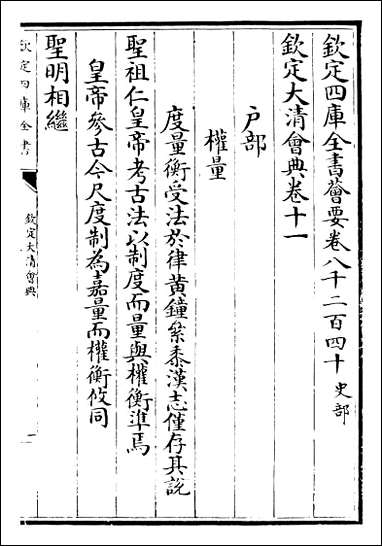 欽定四庫全書薈要卷八千二百四十 史部
欽定大清會典卷十一
戶部
權量
度量衡受法於律黃鐘絫黍漢志僅存其說
聖祖仁皇帝考古法以制度而量與權衡準焉
皇帝參古今尺度制為嘉量而權衡攸同
聖明相繼
欽定四庫全書
欽定大清會典
一